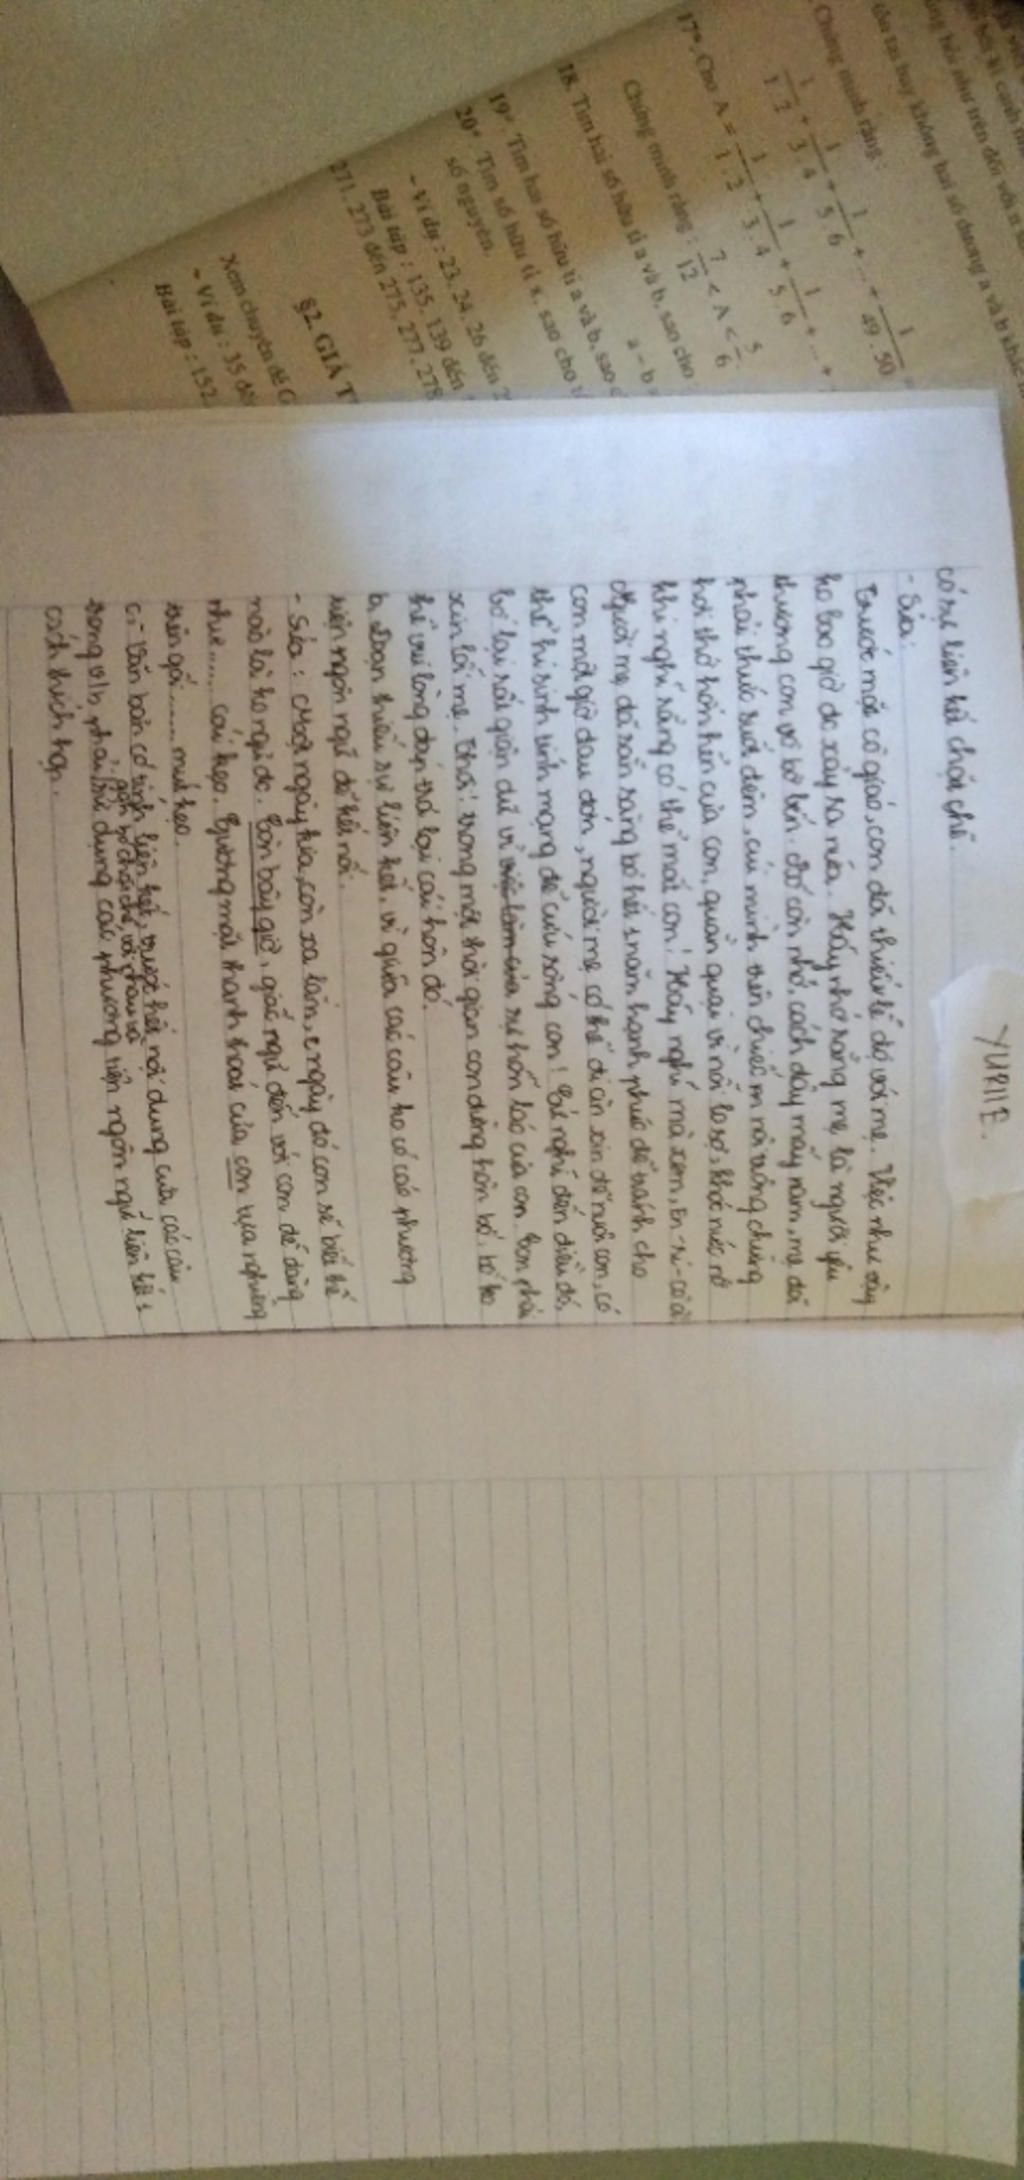 YURIIE.
có sự liên kết chặt chẽ.
- Sửa:
Trước mặt cô giáo, con đã thiếu lễ độ với mẹ. Việc như vậy
ko bao giờ đc xảy ra nữa. Hãy nhớ rằng mẹ là người yêu
thương con vô bờ bến. Bố còn nhớ, cách đây mấy năm, mẹ đã
phải thức suốt đêm, cúi mình trên chiếc nôi trông chừng
hơi thở hổn hển của con, quằn quại vì nỗi lo sợ, khóc nức nở
khi nghĩ rằng có thể mất con! Hãy nghĩ mà xem, En-ri-cô à!
Người mẹ đã sẵn sàng bỏ hết 1 năm hạnh phúc để tránh cho
con một giờ đau đớn, người mẹ có thể đi ăn xin để nuôi con, có
thể hi sinh tính mạng để cứu sống con! Cứ nghĩ đến điều đó,
bố lại rất giận dữ vì sự hỗn láo của con. Con phải
xin lỗi mẹ. Thôi! trong một thời gian con đừng hôn bố, bố ko
thể vui lòng đáp trả lại cái hôn đó.
b, Đoạn thiếu sự liên kết, vì giữa các câu ko có các phương
tiện ngôn ngữ để kết nối.
- Sửa: Một ngày kia, còn xa lắm, ngày đó con sẽ biết thế
nào là ko ngủ đc. Còn bây giờ, giấc ngủ đến với con dễ dàng
như...... cái kẹo. Gương mặt thanh thoát của con tựa nghiêng
trên gối....... mút kẹo.
c, - Văn bản có tính liên kết, trước hết nội dung của các câu
gắn bó chặt chẽ với nhau và
trong v/b phải sử dụng các phương tiện ngôn ngữ liên kết 1
cách thích hợp.
Chứng minh rằng :
1/1.2 + 1/3.4 + 1/5.6 + ... + 1/49.50 =
17*. Cho A = 1/1.2 + 1/3.4 + 1/5.6 + ... +
Chứng minh rằng : 7/12 < A < 5/6
18. Tìm hai số hữu tỉ a và b, sao cho
a - b
19*. Tìm hai số hữu tỉ a và b, sao
20*. Tìm số hữu tỉ x, sao cho
số nguyên.
- Ví dụ : 23, 24, 26 đến
Bài tập : 135, 139 đến
271, 273 đến 275, 277, 278
§2. GIÁ T
Xem chuyên đề G
- Ví dụ : 35 đế
Bài tập : 152,